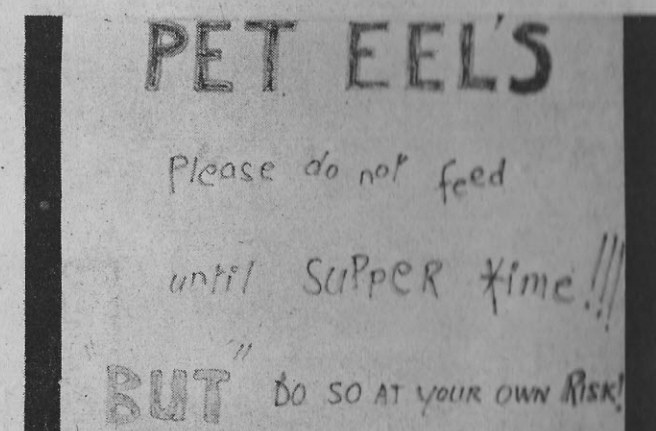 PET EEL'S
Please do not feed
until SuPPeR time!!!
"BUT" DO SO AT YOUR OWN RISK!